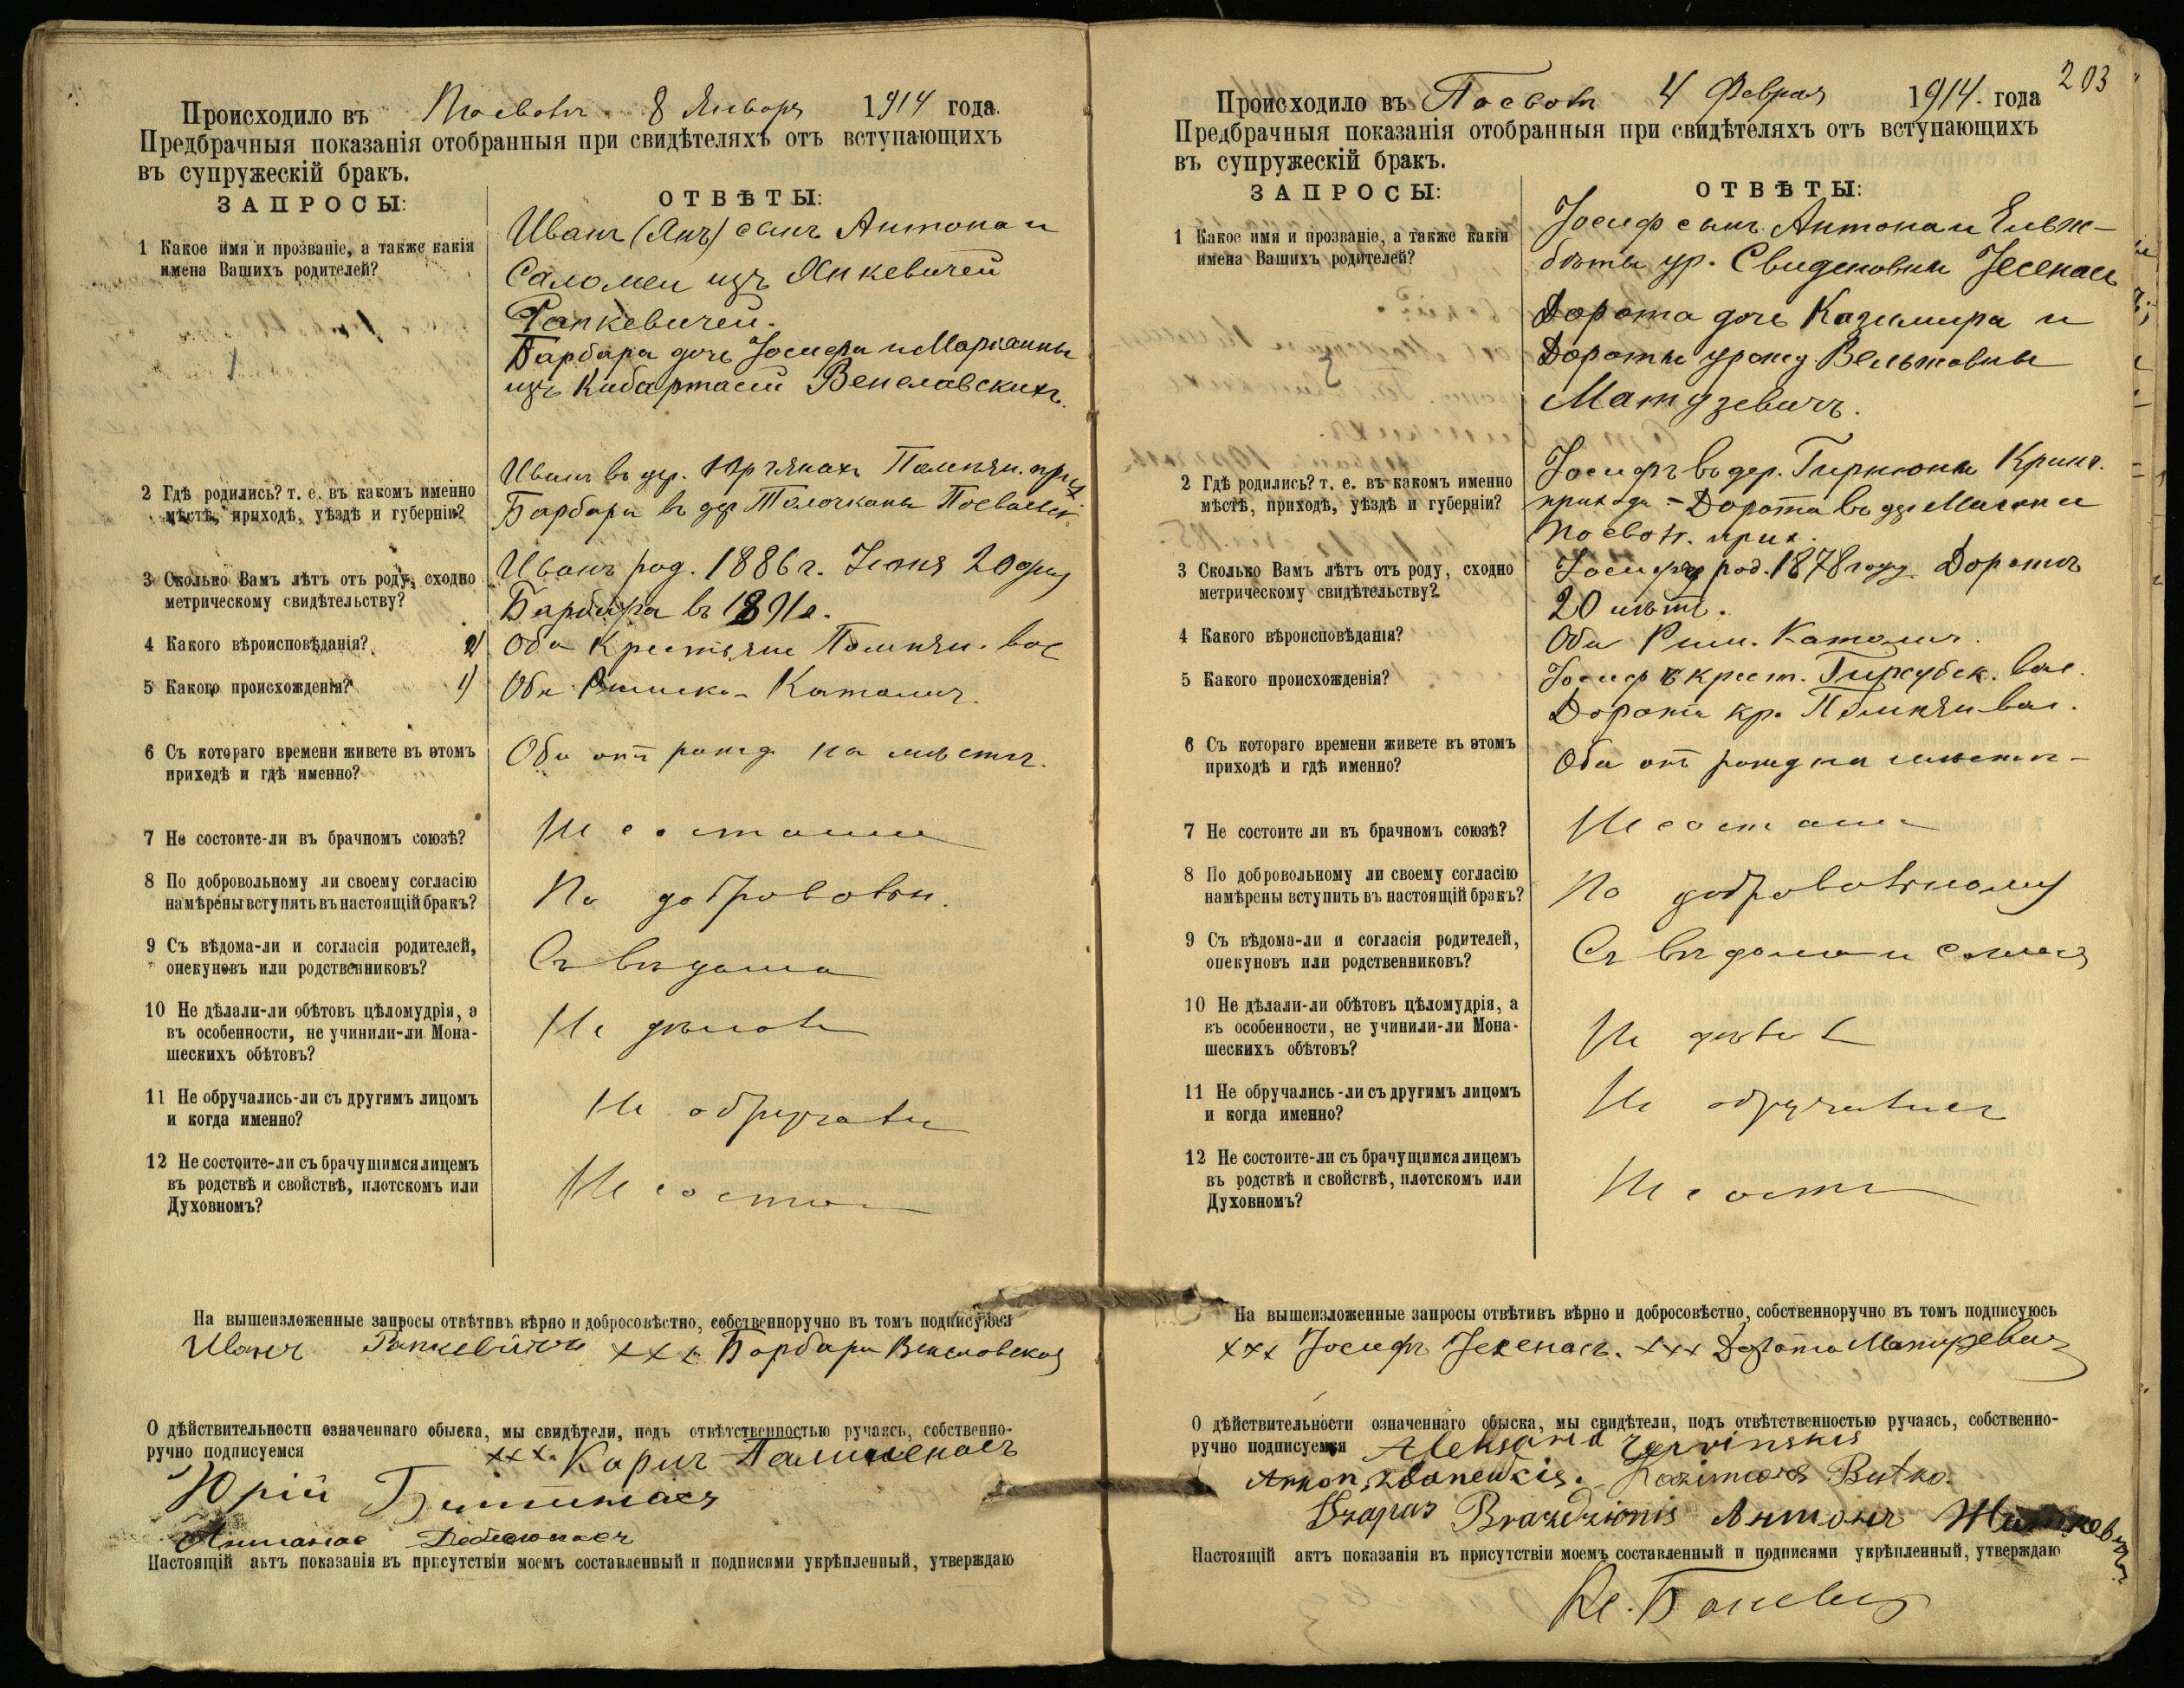 Происходило въ Посволь 8 Января 1914 года.
Предбрачныя показанія отобранныя при свидѣтеляхъ отъ вступающихъ
въ супружескій бракъ.
ЗАПРОСЫ:
ОТВѢТЫ:
1 Какое имя и прозваніе, а также какія
имена Вашихъ родителей?
Иванъ (Янъ) сынъ Антона и
Саломеи изъ Янкевичей
Рапкевичей.
Барбара дочь Іосифа и Маріанны
изъ Кибартасей Венславскихъ.
2 Гдѣ родились? т. е. въ какомъ именно
мѣстѣ, приходѣ, уѣздѣ и губерніи?
Иванъ въ дер. прих
Барбара въ дер
3 Сколько Вамъ лѣтъ отъ роду, сходно
метрическому свидѣтельству?
Иванъ род. 1886 г. 20 дня
Барбара въ 1891 г.
4 Какого вѣроисповѣданія? 2)
Оба Крестьяне вол
5 Какого происхожденія? 1)
Оба Римско-Католич.
6 Съ котораго времени живете въ этомъ
приходѣ и гдѣ именно?
Оба отъ рожд на мѣстѣ.
7 Не состоите-ли въ брачномъ союзѣ?
Не состоимъ
8 По добровольному ли своему согласію
намѣрены вступить въ настоящій бракъ?
По добровольн.
9 Съ вѣдома-ли и согласія родителей,
опекуновъ или родственниковъ?
Съ вѣдома
10 Не дѣлали-ли обѣтовъ цѣломудрія, а
въ особенности, не учинили-ли Мона-
шескихъ обѣтовъ?
Не дѣлали
11 Не обручались-ли съ другимъ лицомъ
и когда именно?
Не обручали
12 Не состоите-ли съ брачущимся лицемъ
въ родствѣ и свойствѣ, плотскомъ или
Духовномъ?
Не состои
На вышеизложенные запросы отвѣтивъ вѣрно и добросовѣстно, собственноручно въ томъ подписуюсь
Иванъ Рапкевичъ xxx Барбара Венславская
О дѣйствительности означеннаго обыска, мы свидѣтели, подъ отвѣтственностью ручаясь, собственно-
ручно подписуемся
xxx. Карлъ
Юрій
Антанас
Настоящій актъ показанія въ присутствіи моемъ составленный и подписями укрѣпленный, утверждаю
203
Происходило въ Посволь 4 Феврал 1914. года
Предбрачныя показанія отобранныя при свидѣтеляхъ отъ вступающихъ
въ супружескій бракъ.
ЗАПРОСЫ:
ОТВѢТЫ:
1 Какое имя и прозваніе, а также какія
имена Вашихъ родителей?
Іосиф сынъ Антона и Ельж-
бѣты ур. Свиденовны Іесенась
Дорота дочь Казимира и
Дороты урожд. Вельжовны
Матузевичъ.
2 Гдѣ родились? т. е. въ какомъ именно
мѣстѣ, приходѣ, уѣздѣ и губерніи?
Іосифъ въ дер. Гирнюны Кринч.
прихода - Дорота въ дер
Посвол. прих.
3 Сколько Вамъ лѣтъ отъ роду, сходно
метрическому свидѣтельству?
Іосифъ род. 1878 году Доротѣ
20 лѣтъ.
4 Какого вѣроисповѣданія?
Оба Рим. Католич.
5 Какого происхожденія?
Іосиф крест. вол.
Дорота кр. вол.
6 Съ котораго времени живете въ этомъ
приходѣ и гдѣ именно?
Оба отъ рожд на мѣстѣ -
7 Не состоите ли въ брачномъ союзѣ?
Не состоимъ
8 По добровольному ли своему согласію
намѣрены вступить въ настоящій бракъ?
По добровольному
9 Съ вѣдома-ли и согласія родителей,
опекуновъ или родственниковъ?
Съ вѣдома и соглас
10 Не дѣлали-ли обѣтовъ цѣломудрія, а
въ особенности, не учинили-ли Мона-
шескихъ обѣтовъ?
Не дѣлал
11 Не обручались-ли съ другимъ лицомъ
и когда именно?
Не обручались
12 Не состоите-ли съ брачущимся лицемъ
въ родствѣ и свойствѣ, плотскомъ или
Духовномъ?
Не состо
На вышеизложенные запросы отвѣтивъ вѣрно и добросовѣстно, собственноручно въ томъ подписуюсь
xxx Іосифъ Іесенась. xxx Дорота Матузевич
О дѣйствительности означеннаго обыска, мы свидѣтели, подъ отвѣтственностью ручаясь, собственно-
ручно подписуемся
Kazimeras Butko.
Brazdzionis Антонъ
Настоящій актъ показанія въ присутствіи моемъ составленный и подписями укрѣпленный, утверждаю